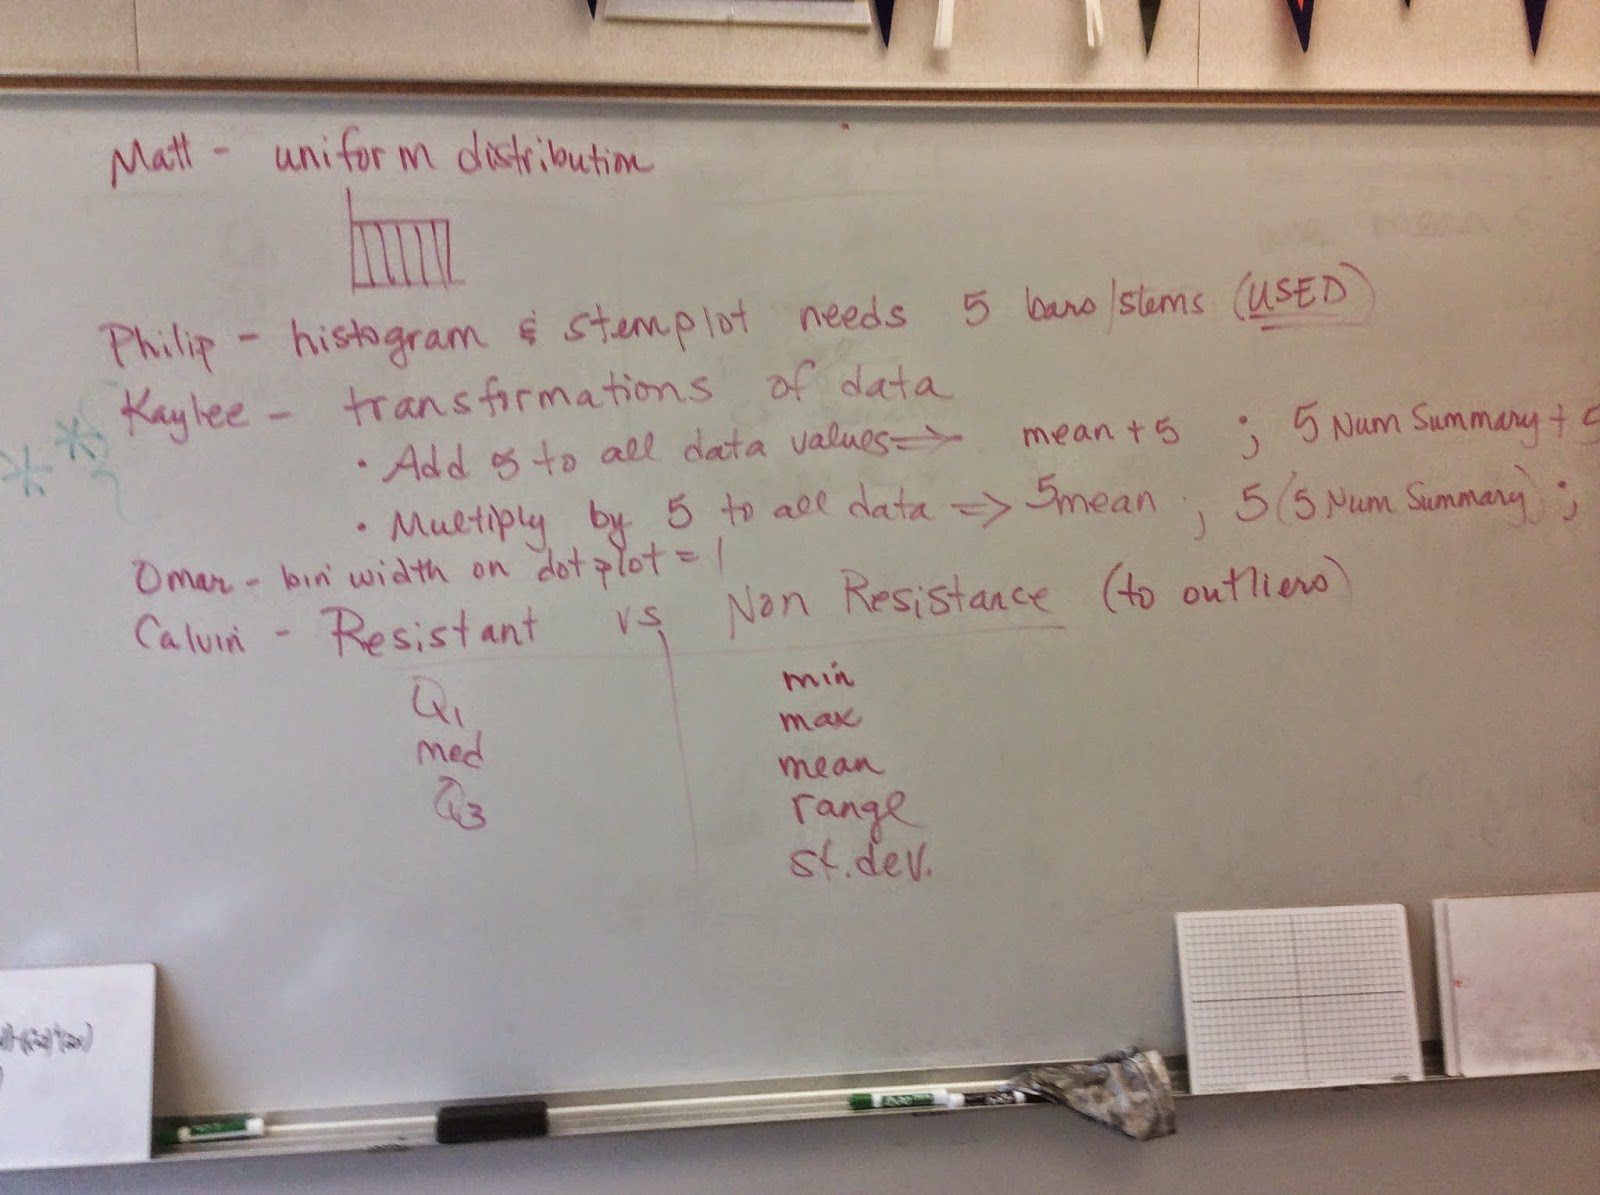 Matt - uniform distribution
Philip - histogram & stemplot needs 5 bars/stems (USED)
Kaylee - transformations of data
• Add 5 to all data values => mean + 5 ; 5 Num Summary + 5
• Multiply by 5 to all data => 5mean ; 5(5 Num Summary) ;
Omar - bin width on dotplot = 1
Calvin - Resistant vs Non Resistance (to outliers)
Q1 min
med max
Q3 mean
range
st.dev.